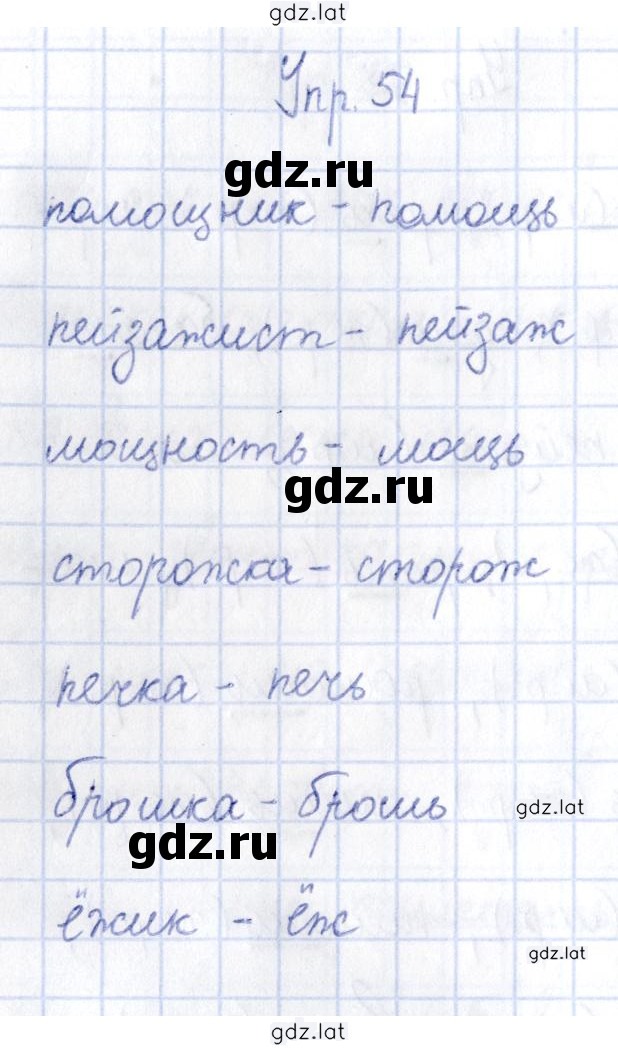 gdz.lat
Упр. 54
gdz.ru
помощник - помощь
пейзажист - пейзаж
мощность - мощь
gdz.ru
сторожка - сторож
печка - печь
брошка - брошь
gdz.lat
gdz.ru
ёжик - ёж
gdz.lat
gdz.lat